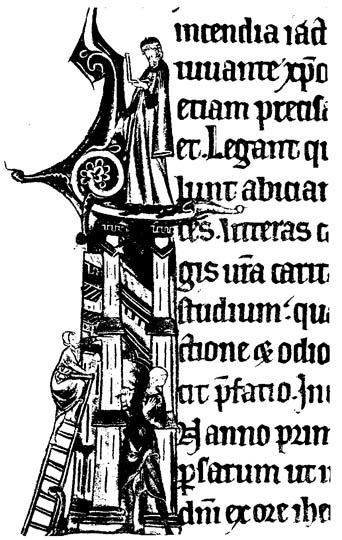 incendia iact
iuvante xp̄o
etiam precisa
et. Legant qu
lunt abician
tes. litteras c
gis vr̄a carit
studium. qua
ctione & odio
cit p̄fatio. In
N anno prim
ꝑsarum ut
dn̄i ex ore ihe